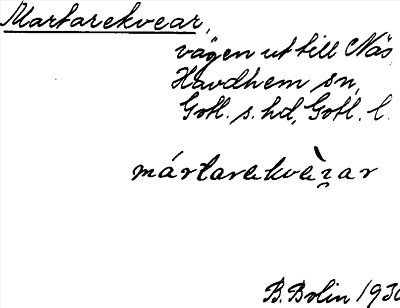 Martarekvear,
vägen ut till Näs
Havdhem sn,
Gotl. s. hd, Gotl. l.
mártarekvèar
B. Bolin